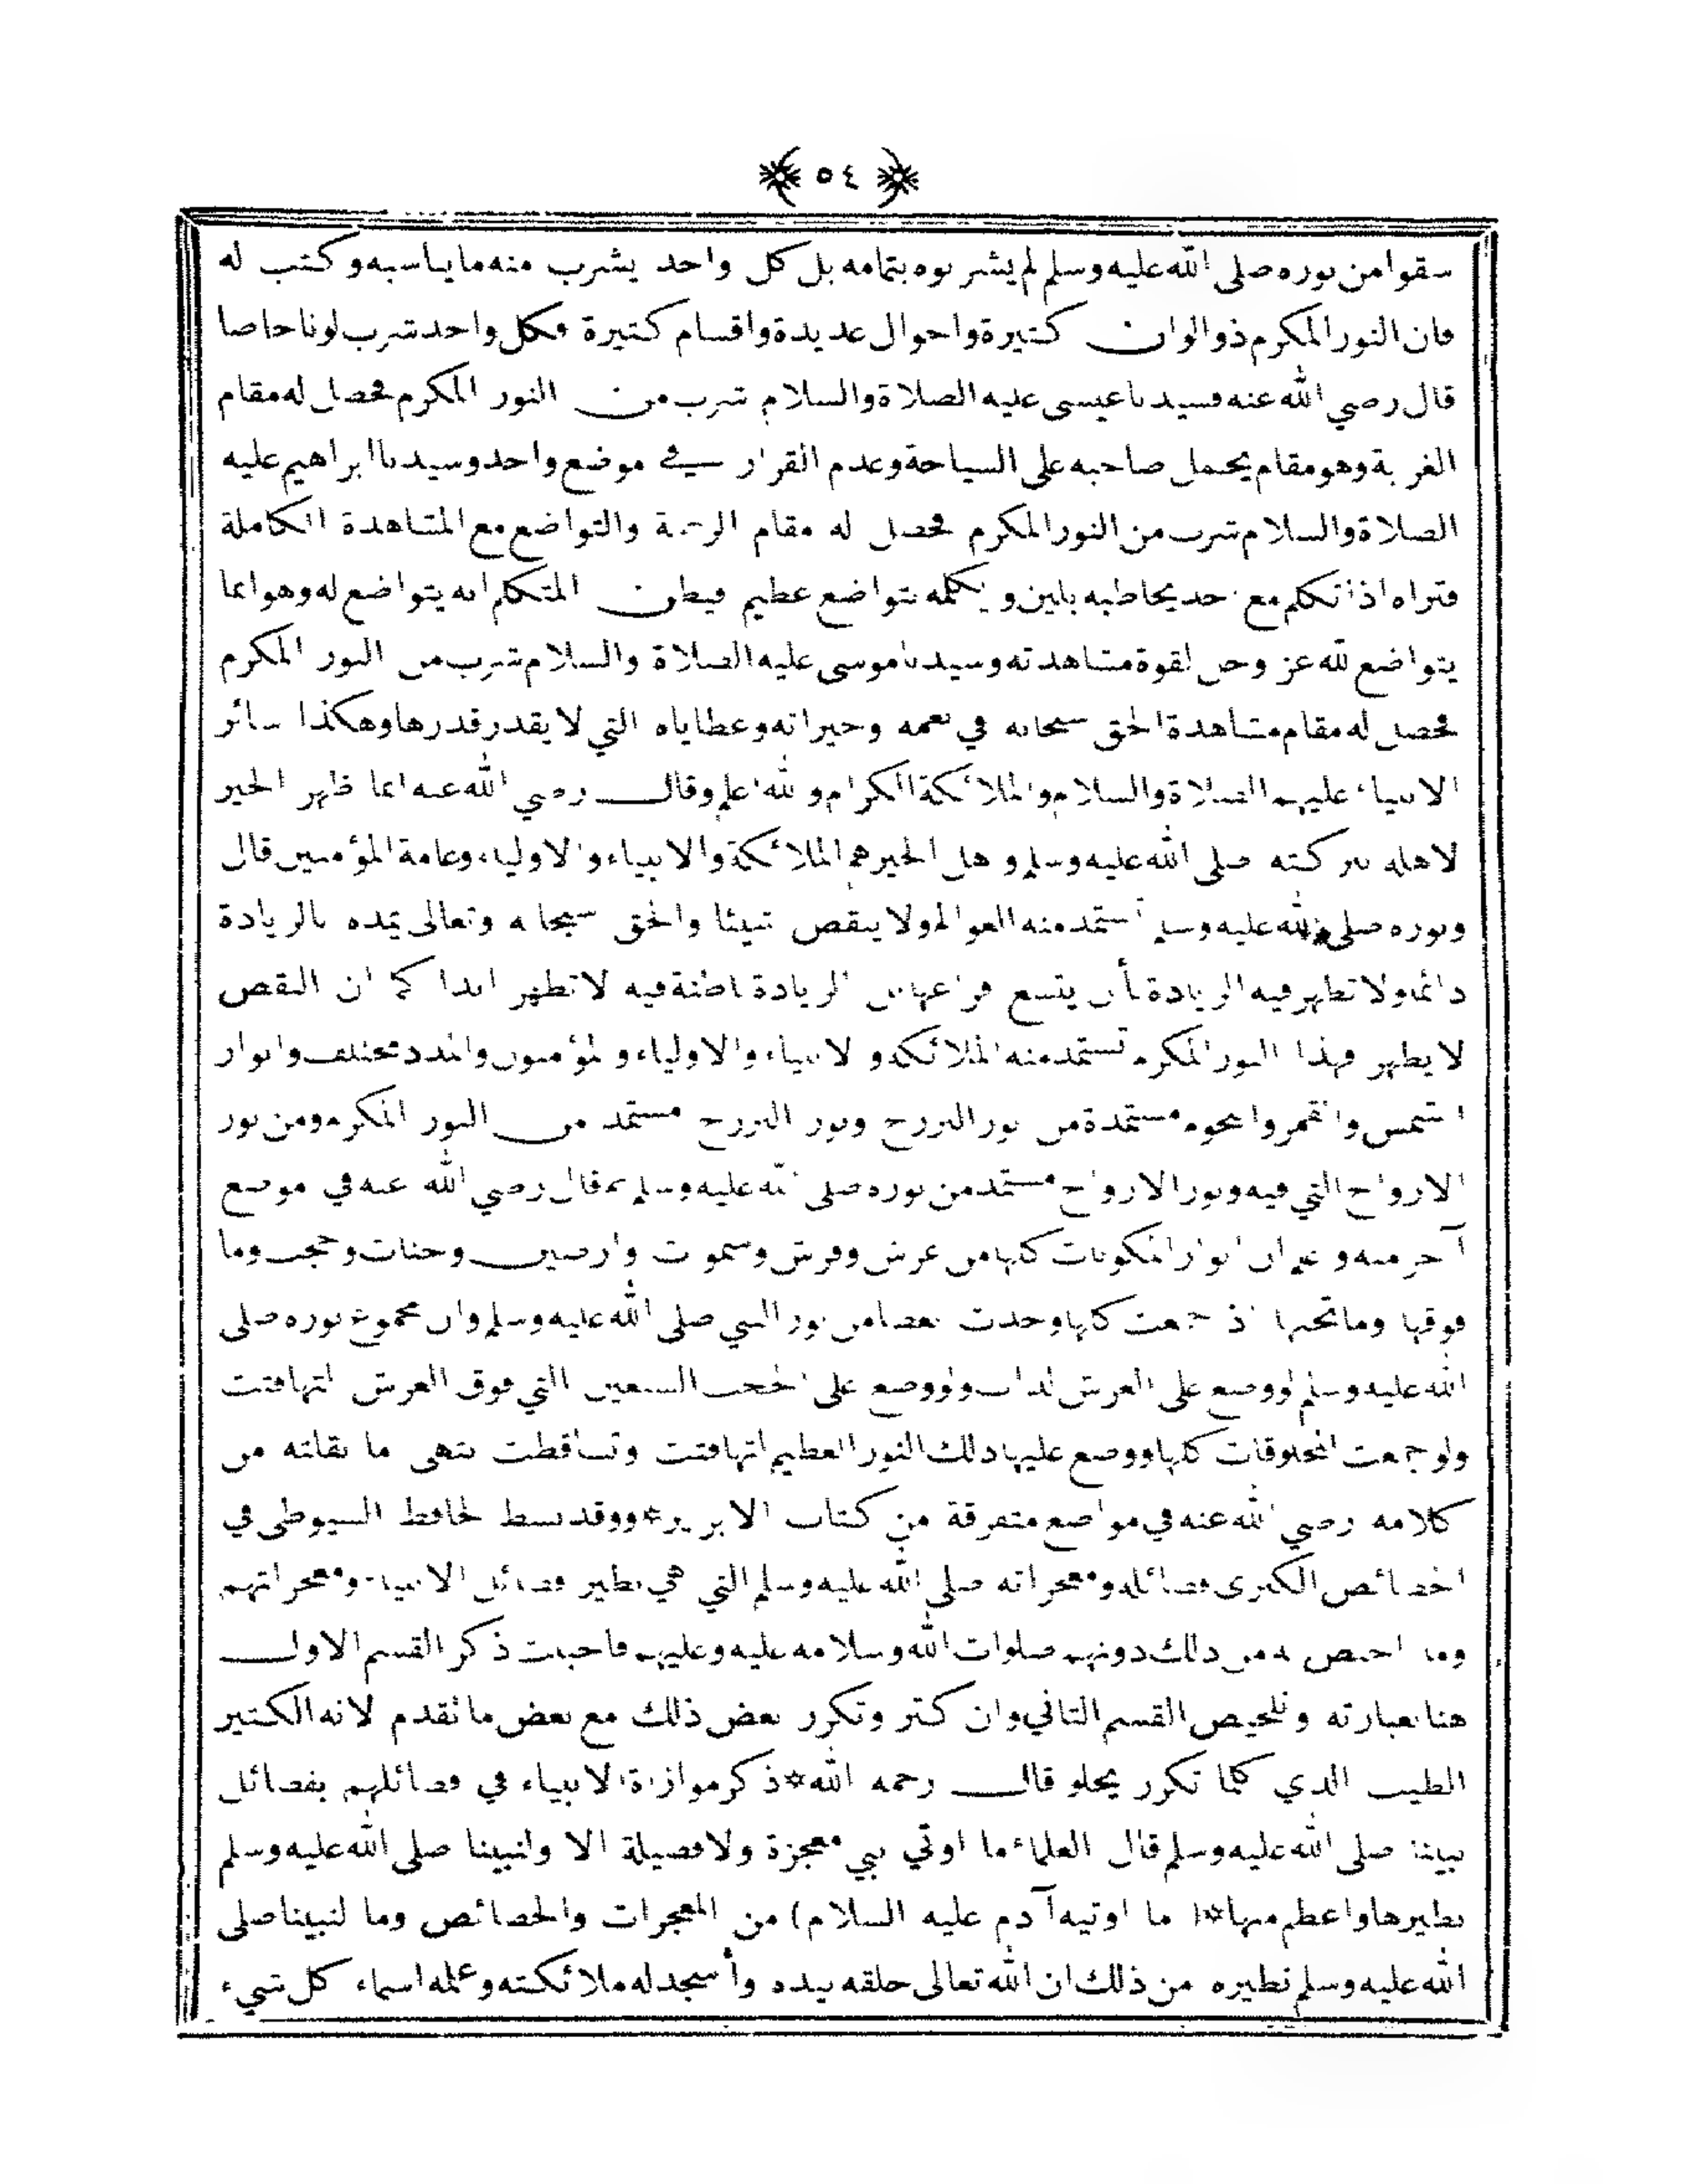 ﴿ ٥٤ ﴾
سقوا من نوره صلى الله عليه وسلم لم يشربوه بتمامه بل كل واحد يشرب منه ما يناسبه وكتب له
فان النور المكرم ذو الوان كثيرة واحوال عديدة واقسام كثيرة فكل واحد شرب لونا خاصا
قال رضي الله عنه فسيدنا عيسى عليه الصلاة والسلام شرب من النور المكرم فحصل له مقام
الغربة وهو مقام يحمل صاحبه على السياحة وعدم القرار في موضع واحد وسيدنا ابراهيم عليه
الصلاة والسلام شرب من النور المكرم فحصل له مقام الرحمة والتواضع مع المشاهدة الكاملة
فتراه اذا تكلم مع احد يخاطبه بلين ويكلمه بتواضع عظيم فيظن المتكلم انه يتواضع له وهو انما
يتواضع لله عز وجل لقوة مشاهدته وسيدنا موسى عليه الصلاة والسلام شرب من النور المكرم
فحصل له مقام مشاهدة الحق سبحانه في نعمه وخيراته وعطاياه التي لا يقدر قدرها وهكذا سائر
الانبياء عليهم الصلاة والسلام والملائكة الكرام والله اعلم وقال رضي الله عنه انما ظهر الخير
لاهله ببركته صلى الله عليه وسلم واهل الخير هم الملائكة والانبياء والاولياء وعامة المؤمنين قال
ونوره صلى الله عليه وسلم تستمد منه العوالم ولا ينقص شيئا والحق سبحانه وتعالى يمده بالزيادة
دائما ولا تظهر فيه الزيادة بأن يتسع فراغها بل الزيادة باطنة فيه لا تظهر ابدا كما ان النقص
لا يظهر فهذا النور المكرم تستمد منه الملائكة والانبياء والاولياء والمؤمنون والمدد مختلف وانوار
الشمس والقمر والنجوم مستمدة من نور البرزخ ونور البرزخ مستمد من النور المكرم ومن نور
الارواح التي فيه ونور الارواح مستمد من نوره صلى الله عليه وسلم ثم قال رضي الله عنه في موضع
آخر منه واعلم ان انوار المكونات كلها من عرش وفرش وسموات وارضين وجنات وحجب وما
فوقها وما تحتها اذا جمعت كلها وجدت بعضا من نور النبي صلى الله عليه وسلم وان مجموع نوره صلى
الله عليه وسلم لو وضع على العرش لذاب ولو وضع على الحجب السبعين التي فوق العرش لتهافتت
ولو جمعت المخلوقات كلها ووضع عليها ذلك النور العظيم لتهافتت وتساقطت انتهى ما نقلته من
كلامه رضي الله عنه في مواضع متفرقة من كتاب الابريز * وقد بسط الحافظ السيوطي في
الخصائص الكبرى فضائله ومعجزاته صلى الله عليه وسلم التي هي نظير فضائل الانبياء ومعجزاتهم
وما اختص به من ذلك دونهم صلوات الله وسلامه عليه وعليهم فاحببت ذكر القسم الاول
هنا بعبارته وتلخيص القسم الثاني وان كثر وتكرر بعض ذلك مع بعض ما تقدم لانه الكثير
الطيب الذي كلما تكرر يحلو قال رحمه الله * ذكر موازاة الانبياء في فضائلهم بفضائل
نبينا صلى الله عليه وسلم قال العلماء ما اوتي نبي معجزة ولا فضيلة الا ولنبينا صلى الله عليه وسلم
نظيرها واعظم منها * ( ما اوتيه آدم عليه السلام ) من المعجزات والخصائص وما لنبينا صلى
الله عليه وسلم نظيره من ذلك ان الله تعالى خلقه بيده وأسجد له ملائكته وعلمه اسماء كل شيء